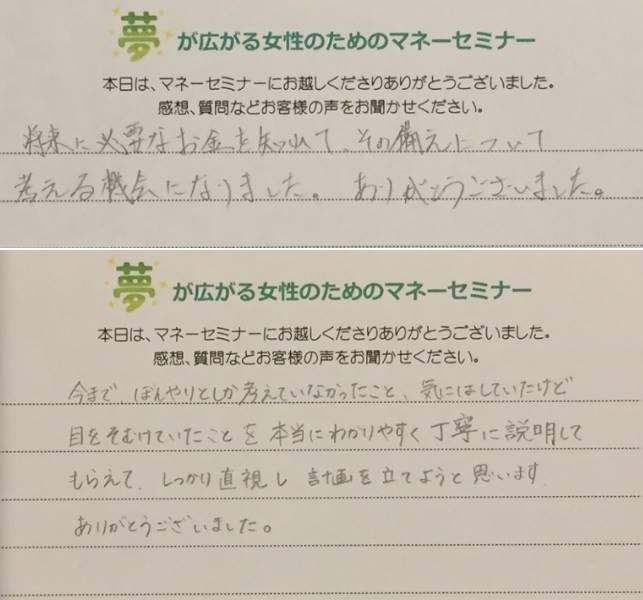 夢が広がる女性のためのマネーセミナー
本日は、マネーセミナーにお越しくださりありがとうございました。
感想、質問などお客様の声をお聞かせください。
将来に必要なお金を知れて、その備えについて
考える機会になりました。ありがとうございました。
夢が広がる女性のためのマネーセミナー
本日は、マネーセミナーにお越しくださりありがとうございました。
感想、質問などお客様の声をお聞かせください。
今まで、ぼんやりとしか考えていなかったこと、気にはしていたけど
目をそむけていたことを本当にわかりやすく丁寧に説明して
もらえて、しっかり直視し計画を立てようと思います
ありがとうございました。